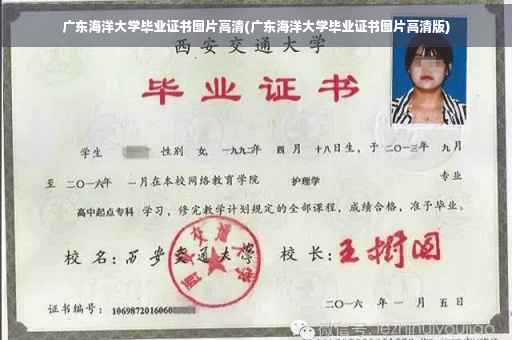 广东海洋大学毕业证书图片高清(广东海洋大学毕业证书图片高清版)
西安交通大学
毕业证书
学生 性别 女, 一九九二年 四月 十八日生, 于 二〇一三年 九月
至 二〇一六年 一月在本校网络教育学院 护理学 专业
高中起点专科 学习, 修完教学计划规定的全部课程, 成绩合格, 准予毕业。
校 名: 西安交通大学 校 长: 王树国
西安交通大学
证书编号: 1069872016060
二〇一六 年 一 月 五 日
微信号: jezhihuiyoujiao